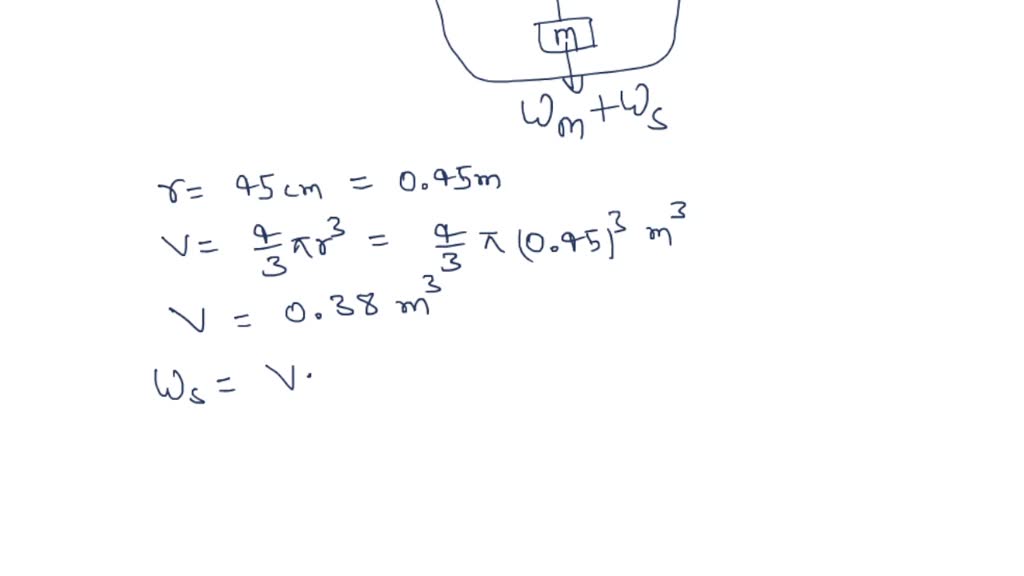 m
Wm + Ws
r = 45 cm = 0.45 m
V = 4/3 πr³ = 4/3 π (0.45)³ m³
V = 0.38 m³
Ws = V.